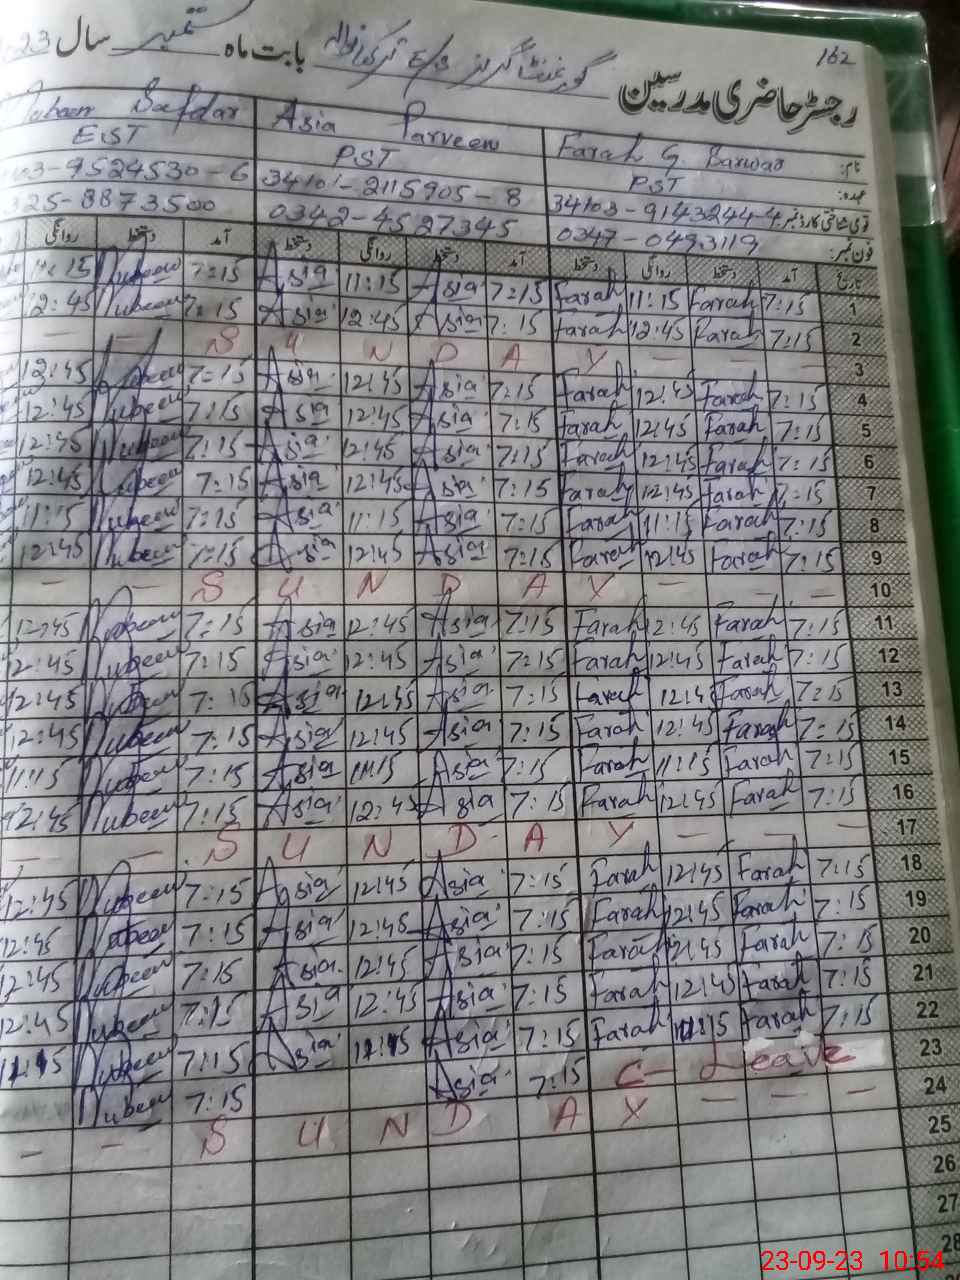 162
رجسٹر حاضری مدرسین گورنمنٹ گرلز E/S بابت ماہ ستمبر سال 23
نام: Farah G Sarwar Asia Parveen Safdar
عہدہ: PST PST EST
قومی شناختی کارڈ نمبر: 34103-9143244-4 34101-2115905-8 03-9524530-6
فون نمبر: 0347-0493119 0342-4527345 325-8873500
تاریخ آمد دستخط روانگی دستخط آمد دستخط روانگی دستخط آمد دستخط روانگی
1 7:15 Farah 11:15 Farah 7:15 Asia 11:15 Asia 7:15 Mubeen 11:15
2 7:15 Farah 12:45 Farah 7:15 Asia 12:45 Asia 7:15 Mubeen 12:45
3 — — S U N D A Y — —
4 7:15 Farah 12:45 Farah 7:15 Asia 12:45 Asia 7:15 Mubeen 12:45
5 7:15 Farah 12:45 Farah 7:15 Asia 12:45 Asia 7:15 Mubeen 12:45
6 7:15 Farah 12:45 Farah 7:15 Asia 12:45 Asia 7:15 Mubeen 12:45
7 7:15 Farah 12:45 Farah 7:15 Asia 12:45 Asia 7:15 Mubeen 12:45
8 7:15 Farah 11:15 Farah 7:15 Asia 11:15 Asia 7:15 Mubeen 11:15
9 7:15 Farah 12:45 Farah 7:15 Asia 12:45 Asia 7:15 Mubeen 12:45
10 — — S U N D A Y — — —
11 7:15 Farah 12:45 Farah 7:15 Asia 12:45 Asia 7:15 Mubeen 12:45
12 7:15 Farah 12:45 Farah 7:15 Asia 12:45 Asia 7:15 Mubeen 12:45
13 7:15 Farah 12:4 Farah 7:15 Asia 12:45 Asia 7:15 Mubeen 12:45
14 7:15 Farah 12:45 Farah 7:15 Asia 12:45 Asia 7:15 Mubeen 12:45
15 7:15 Farah 11:15 Farah 7:15 Asia 11:15 Asia 7:15 Mubeen 11:15
16 7:15 Farah 12:45 Farah 7:15 Asia 12:45 Asia 7:15 Mubeen 12:45
17 — — S U N D A Y — — —
18 7:15 Farah 12:45 Farah 7:15 Asia 12:45 Asia 7:15 Mubeen 12:45
19 7:15 Farah 12:45 Farah 7:15 Asia 12:45 Asia 7:15 Mubeen 12:45
20 7:15 Farah 12:45 Farah 7:15 Asia 12:45 Asia 7:15 Mubeen 12:45
21 7:15 Farah 12:45 Farah 7:15 Asia 12:45 Asia 7:15 Mubeen 12:45
22 7:15 Farah 11:15 Farah 7:15 Asia 11:15 Asia 7:15 Mubeen 11:15
23 C- Leave 7:15 Asia 7:15 Mubeen
24 — — S U N D A Y — — —
25
26
27
28
23-09-23 10:54